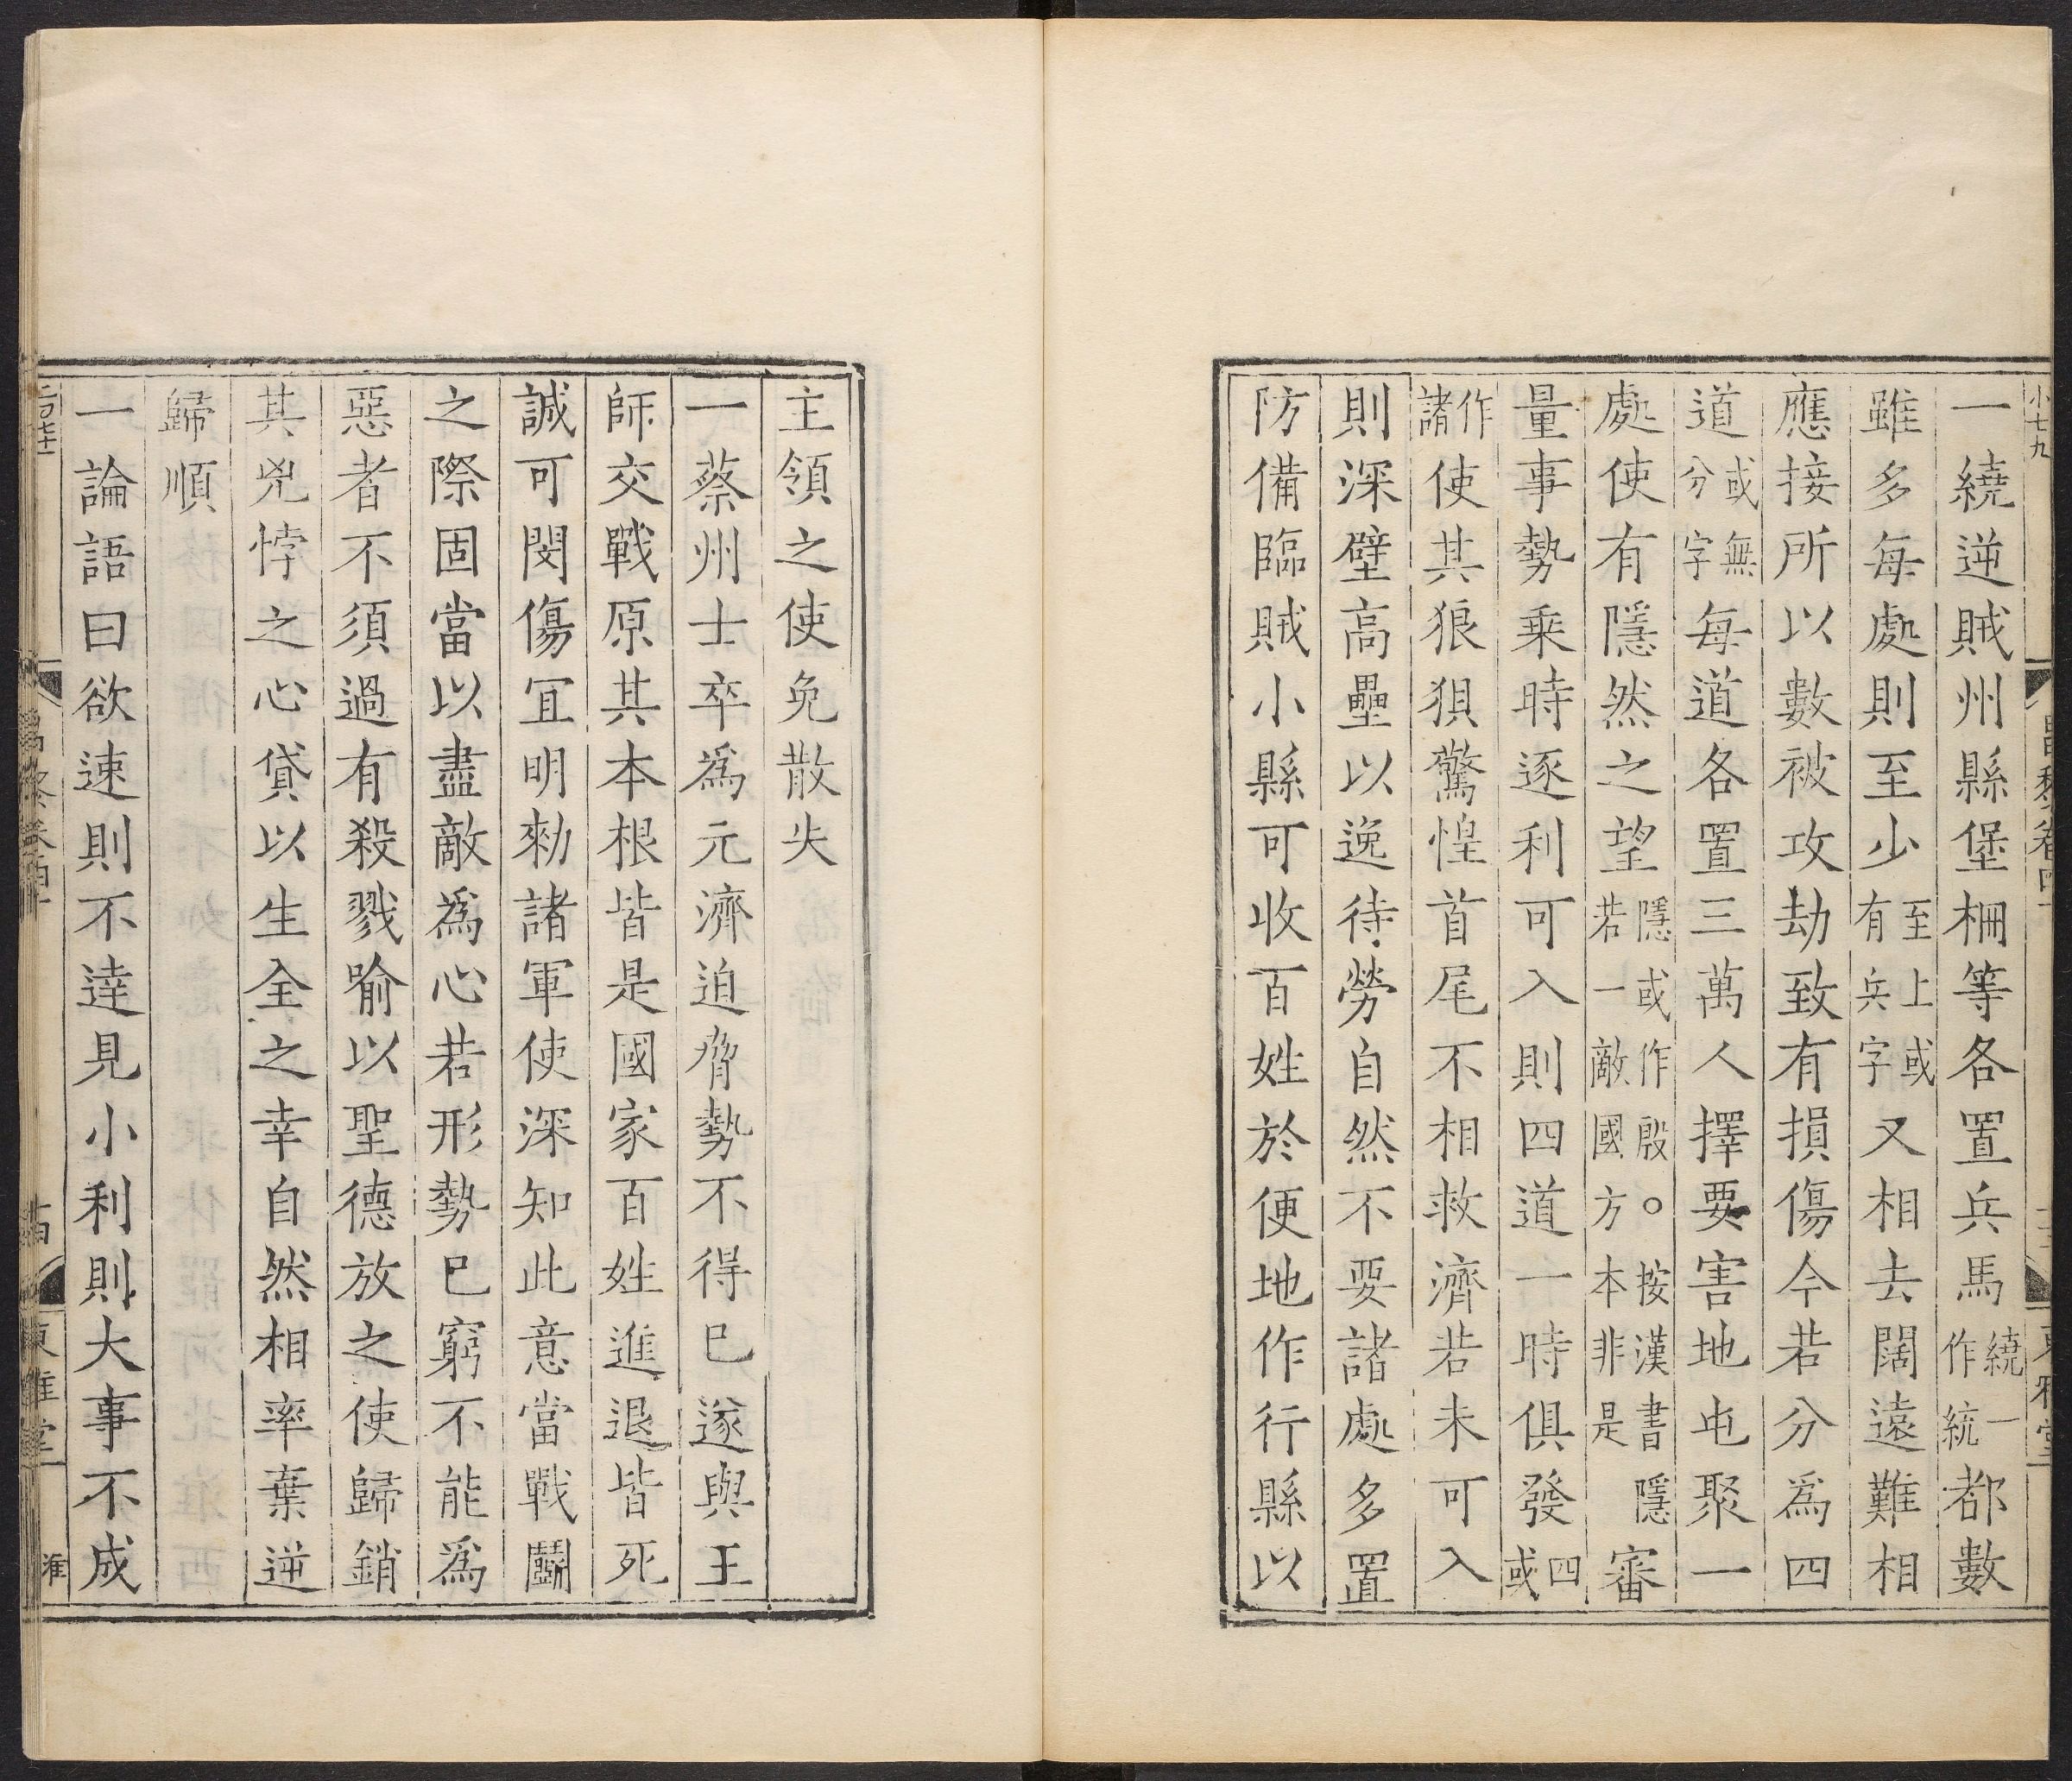 小七九
一繞逆賊州縣堡柵等各置兵馬繞一作統都數
雖多每處則至少至上或有兵字又相去闊遠難相
應接所以數被攻劫致有損傷今若分為四
道或無分字每道各置三萬人擇要害地屯聚一
處使有隱然之望隱或作殷。按漢書隱若一敵國方本非是審
量事勢乘時逐利可入則四道一時俱發四或
作諸使其狼狽驚惶首尾不相救濟若未可入
則深壁高壘以逸待勞自然不要諸處多置
防備臨賊小縣可收百姓於便地作行縣以
主領之使免散失
一蔡州士卒為元濟迫脅勢不得已遂與王
師交戰原其本根皆是國家百姓進退皆死
誠可閔傷宜明勑諸軍使深知此意當戰鬬
之際固當以盡敵為心若形勢已窮不能為
惡者不須過有殺戮喻以聖德放之使歸銷
其兇悖之心貸以生全之幸自然相率棄逆
歸順
一論語曰欲速則不達見小利則大事不成